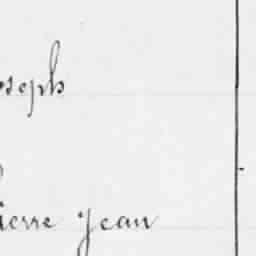 oseph
ierre Jean